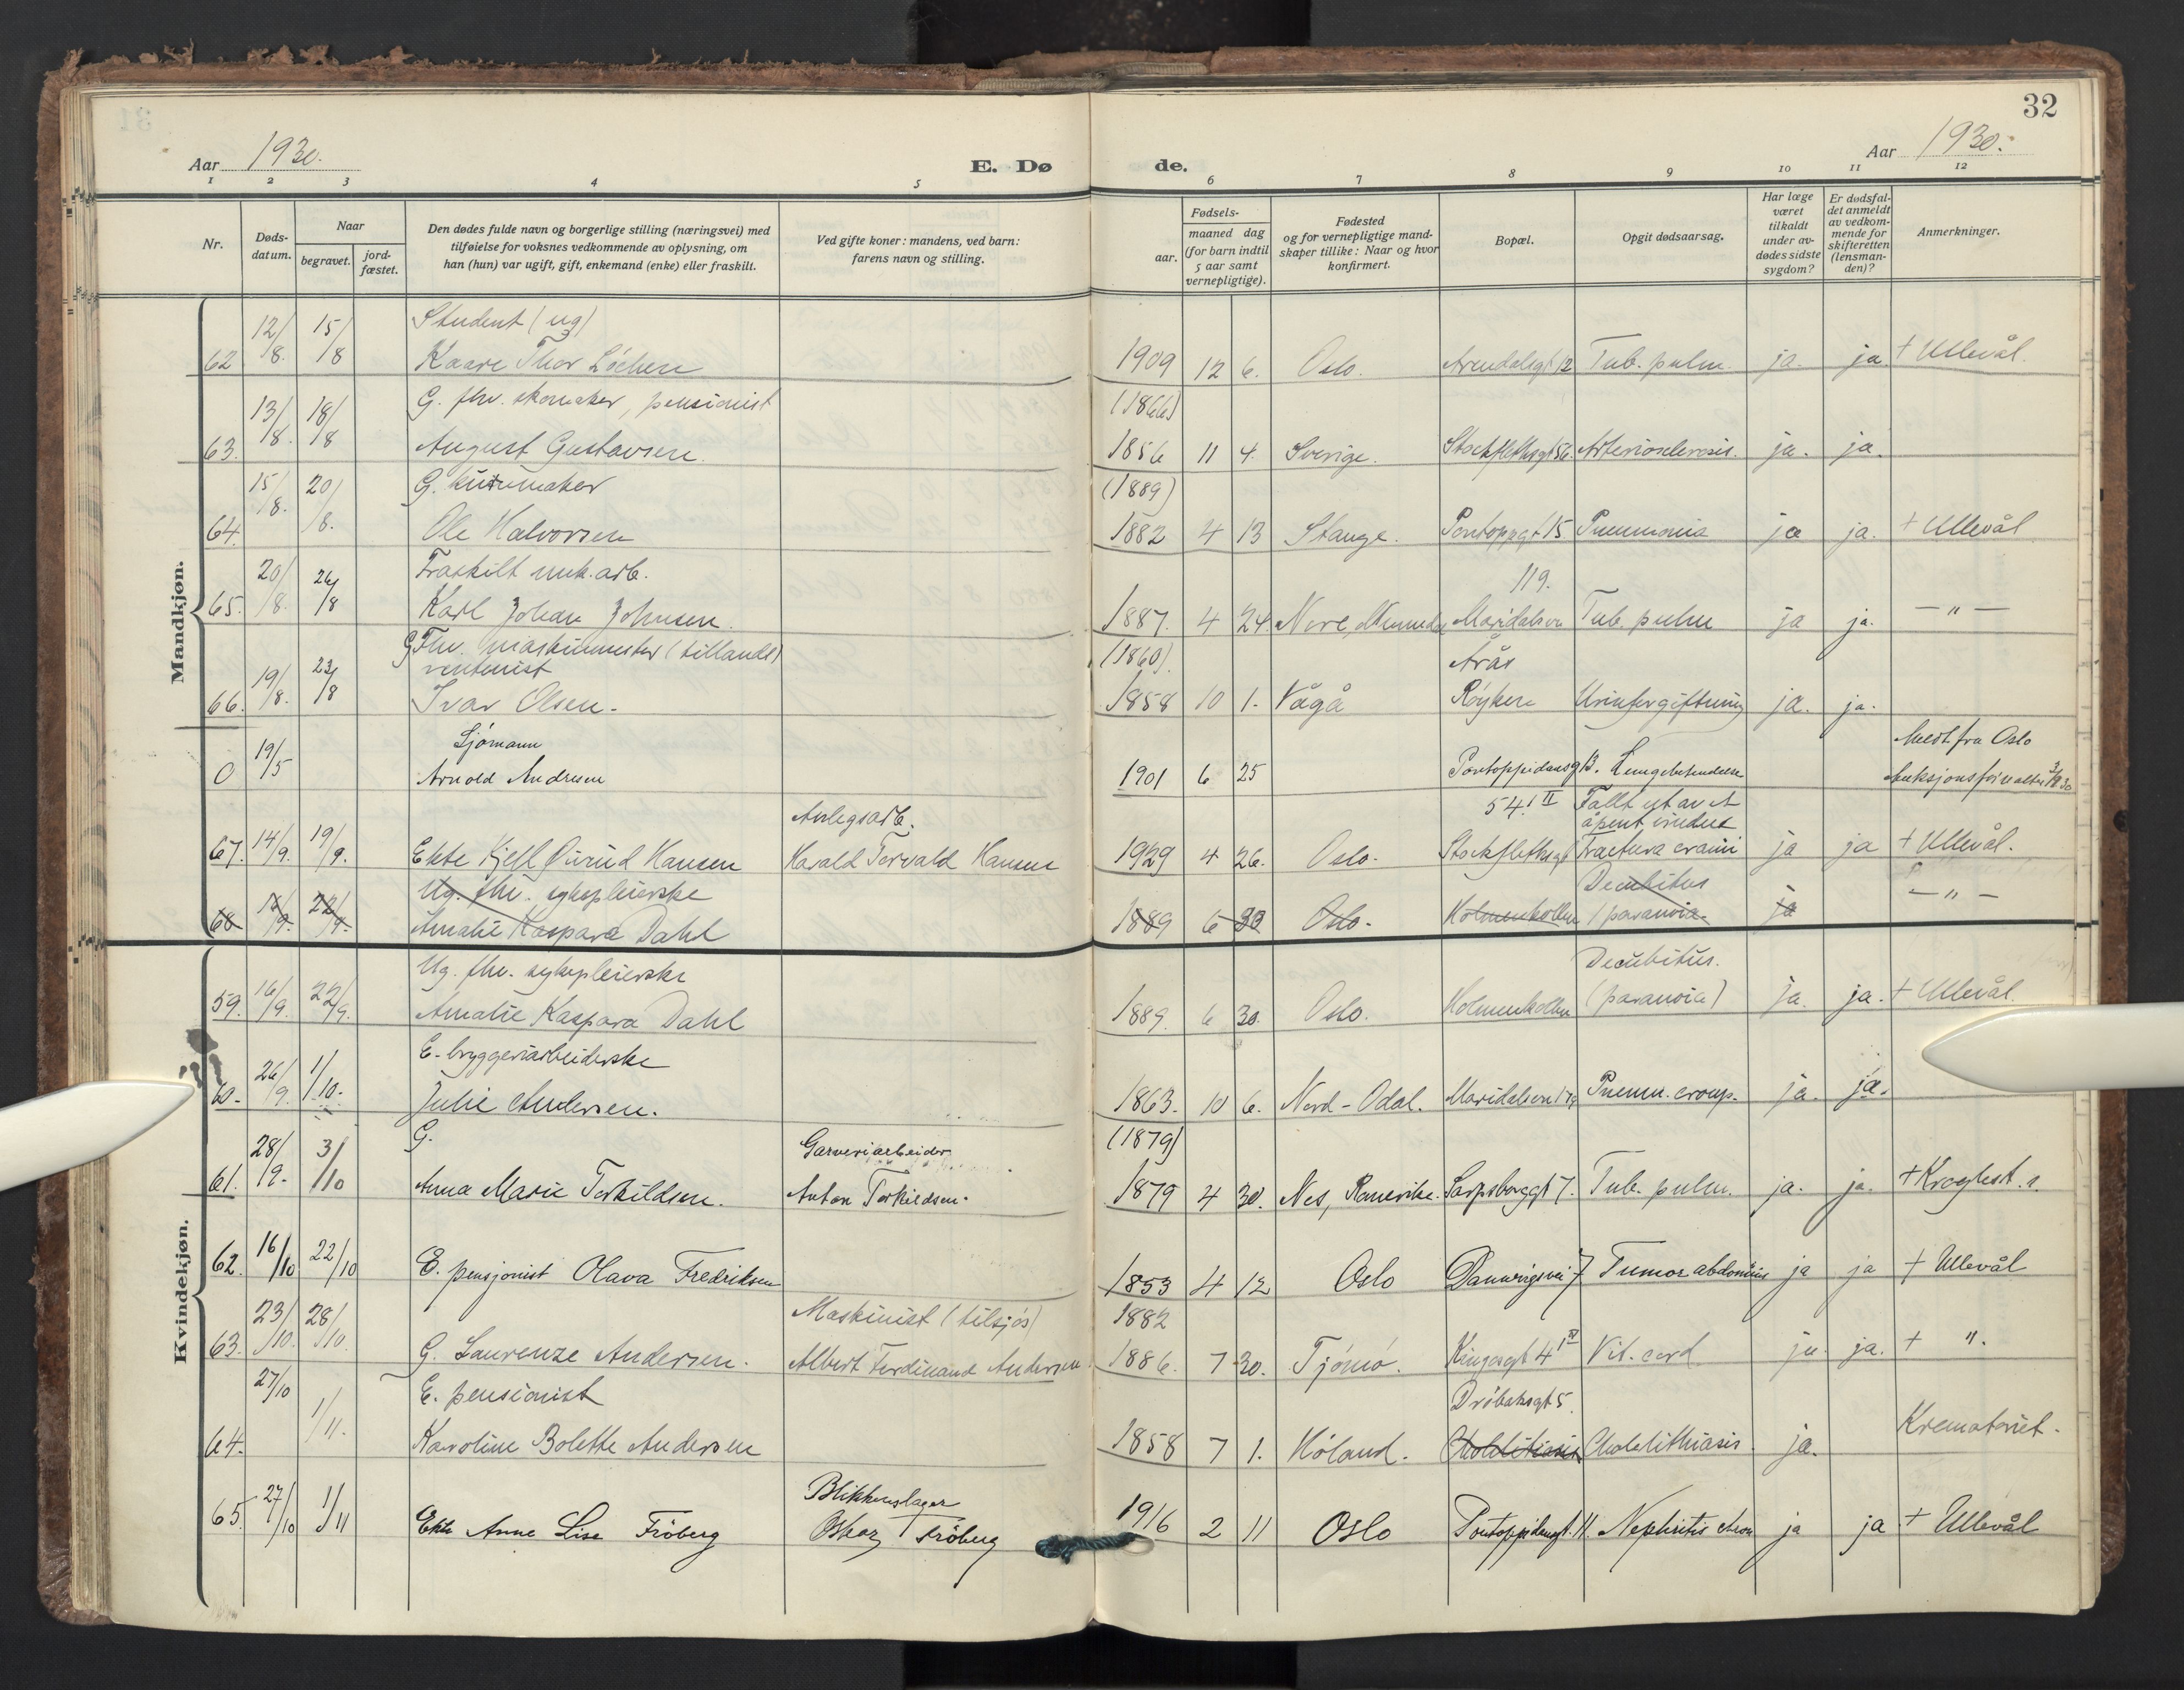 32
Aar 1930.
E. Dø
de.
Aar 1930.
1 2 3 4 5 6 7 8 9 10 11 12
Nr.
Døds-
datum.
Naar
begravet.
jord-
fæstet.
Den dødes fulde navn og borgerlige stilling (næringsvei) med
tilføielse for voksnes vedkommende av oplysning, om
han (hun) var ugift, gift, enkemand (enke) eller fraskilt.
Ved gifte koner: mandens, ved barn:
farens navn og stilling.
Fødsels-
aar.
maaned dag
(for barn indtil
5 aar samt
vernepligtige).
Fødested
og for vernepligtige mand-
skaper tillike: Naar og hvor
konfirmert.
Bopæl.
Opgit dødsaarsag.
Har læge
været
tilkaldt
under av-
dødes sidste
sygdom?
Er dødsfal-
det anmeldt
av vedkom-
mende for
skifteretten
(lensman-
den)?
Anmerkninger.
Mandkjøn.
Student (ug)
62 12/8. 15/8 Kaare Thor Löchen 1909 12 6. Oslo. Arendalsgt 12 Tub. pulm. ja. ja. + Ullevål.
G. fhv. skomaker, pensionist (1866)
63. 13/8. 18/8 August Gustavsen. 1856 11 4. Sverige. Stockflethsgt 56. Arteriosclerosis. ja. ja.
G. buntmaker (1889)
64. 15/8. 20/8. Ole Halvorsen 1882 4 13 Stange. Pontoppgt 15 Pneumonia ja ja. + Ullevål
Fraskilt murk. arb. 119.
65. 20/8. 26/8 Karl Johan Johnsen. 1887. 4 24. Nore, Maridalsvn Tub. pulm ja ja. — " —
G Fhv. maskinmester (tillands) (1860). Årås
rentenist
66. 19/8. 23/8 Ivar Olsen. 1858 10 1. Vågå Röyken Urinforgiftning ja. ja.
Sjömann Meldt fra Oslo
0 19/5 Arnold Andresen 1901 6 25 Pontoppidansg 13. Lungebetendelse
Anlegsarb. 54 II Fallt ut av et
åpent vindu
67. 14/9. 19/9. Ekte Kjell Öurud Hansen Harald Torvald Hansen 1929 4 26. Oslo. Stockflethsgt Fractura cranii ja ja + Ullevål.
Ug. fhv. sykepleierske Decubitus
68 16/9. 22/9. Amalie Kaspara Dahl 1889 6 30 Oslo. Holmenkollen (paranoia. ja — " —
Kvindekjøn.
Ug. fhv. sykepleierske Decubitus.
59. 16/9. 22/9. Amalie Kaspara Dahl 1889. 6 30. Oslo. Holmenkollen (paranoia) ja. ja. + Ullevål.
E. bryggeriarbeiderske
60. 26/9. 1/10. Julie Andersen. 1863. 10 6. Nord-Odal. Maridalsvn Pneum. croup. ja. ja.
G. Garveriarbeider (1879)
61. 28/9. 3/10 Anna Marie Torkildsen. Anton Torkildsen. 1879 4 30. Nes, Romerike. Sarpsborggt 7. Tub. pulm. ja. ja.
62. 16/10 22/10 E. pensjonist Olava Fredriksen 1853 4 12 Oslo Dannevigsvei 7 Tumor abdominis ja ja + Ullevål
Maskinist (tilsjös) 1882
63. 23/10. 28/10. G. Laurenze Andersen. Albert Ferdinand Andersen 1886. 7 30. Tjömö. Kingosgt 4 IV Vit. cord ja ja. + ".
E. pensionist Dröbaksgt 5.
64. 27/10 1/11. Karoline Bolette Andersen 1858 7 1. Höland. Cholelithiasis Cholelithiasis. ja. Krematoriet.
Blikkenslager
65. 27/10 1/11 Ekte Anne Lise Fröberg Oskar Fröberg 1916 2 11 Oslo Pontoppidangt. 11. Nephritis chron ja ja + Ullevål